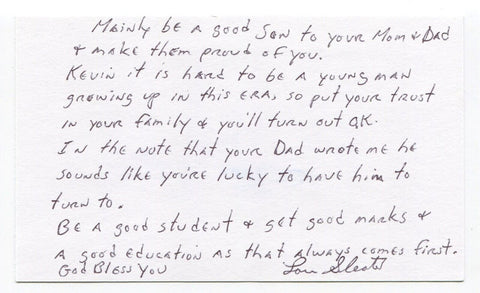 Mainly be a good son to your Mom & Dad
& make them proud of you.
Kevin it is hard to be a young man
growing up in this era, so put your trust
in your family & you'll turn out OK.
In the note that your Dad wrote me he
sounds like you're lucky to have him to
turn to.
Be a good student & get good marks &
a good education as that always comes first.
God Bless You Lou Sleater